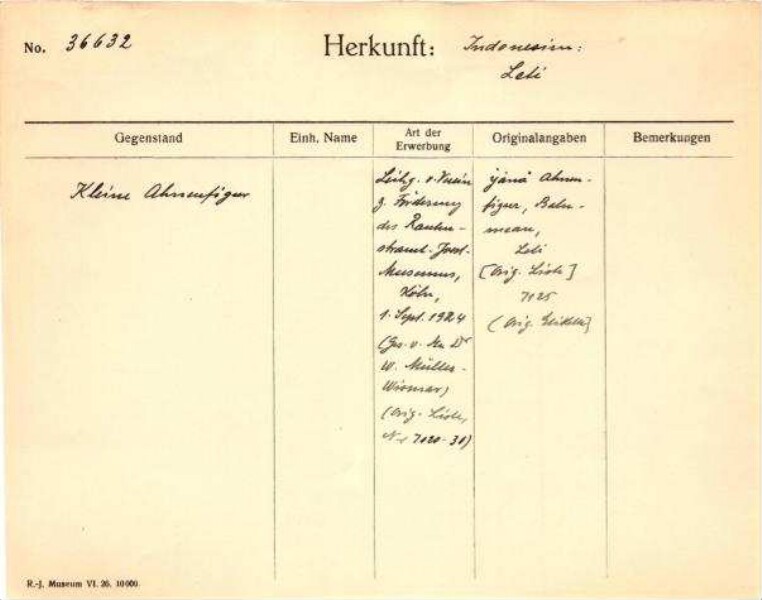 No. 36632
Herkunft: Indonesien:
Leti
Gegenstand
Einh. Name
Art der
Erwerbung
Originalangaben
Bemerkungen
Kleine Ahnenfigur
Leihg. v. Verein
z. Förderung
des Rauten-
strauch-Joest-
Museums,
Köln,
1. Sept. 1924
(Ges. v. Dr
W. Müller-
Wismar)
(Orig. Liste,
Nr 7020-30)
Ahnen-
figur,
Leti
[Orig. Liste]
7025
(Orig.
R.-J. Museum VI. 26. 10000.